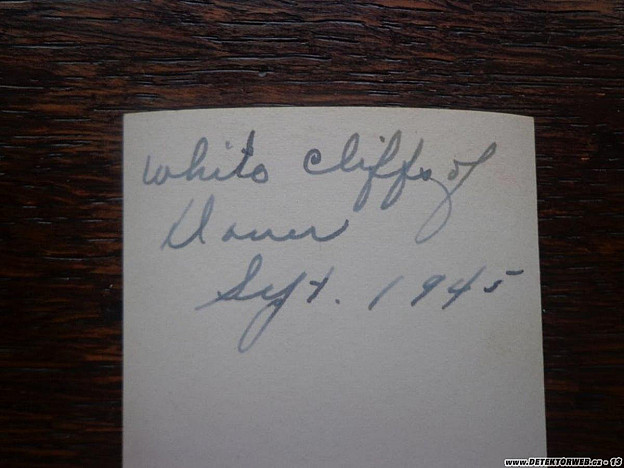 white cliffs of
Dover
Sept. 1945
www.DETEKTORWEB.cz - 13